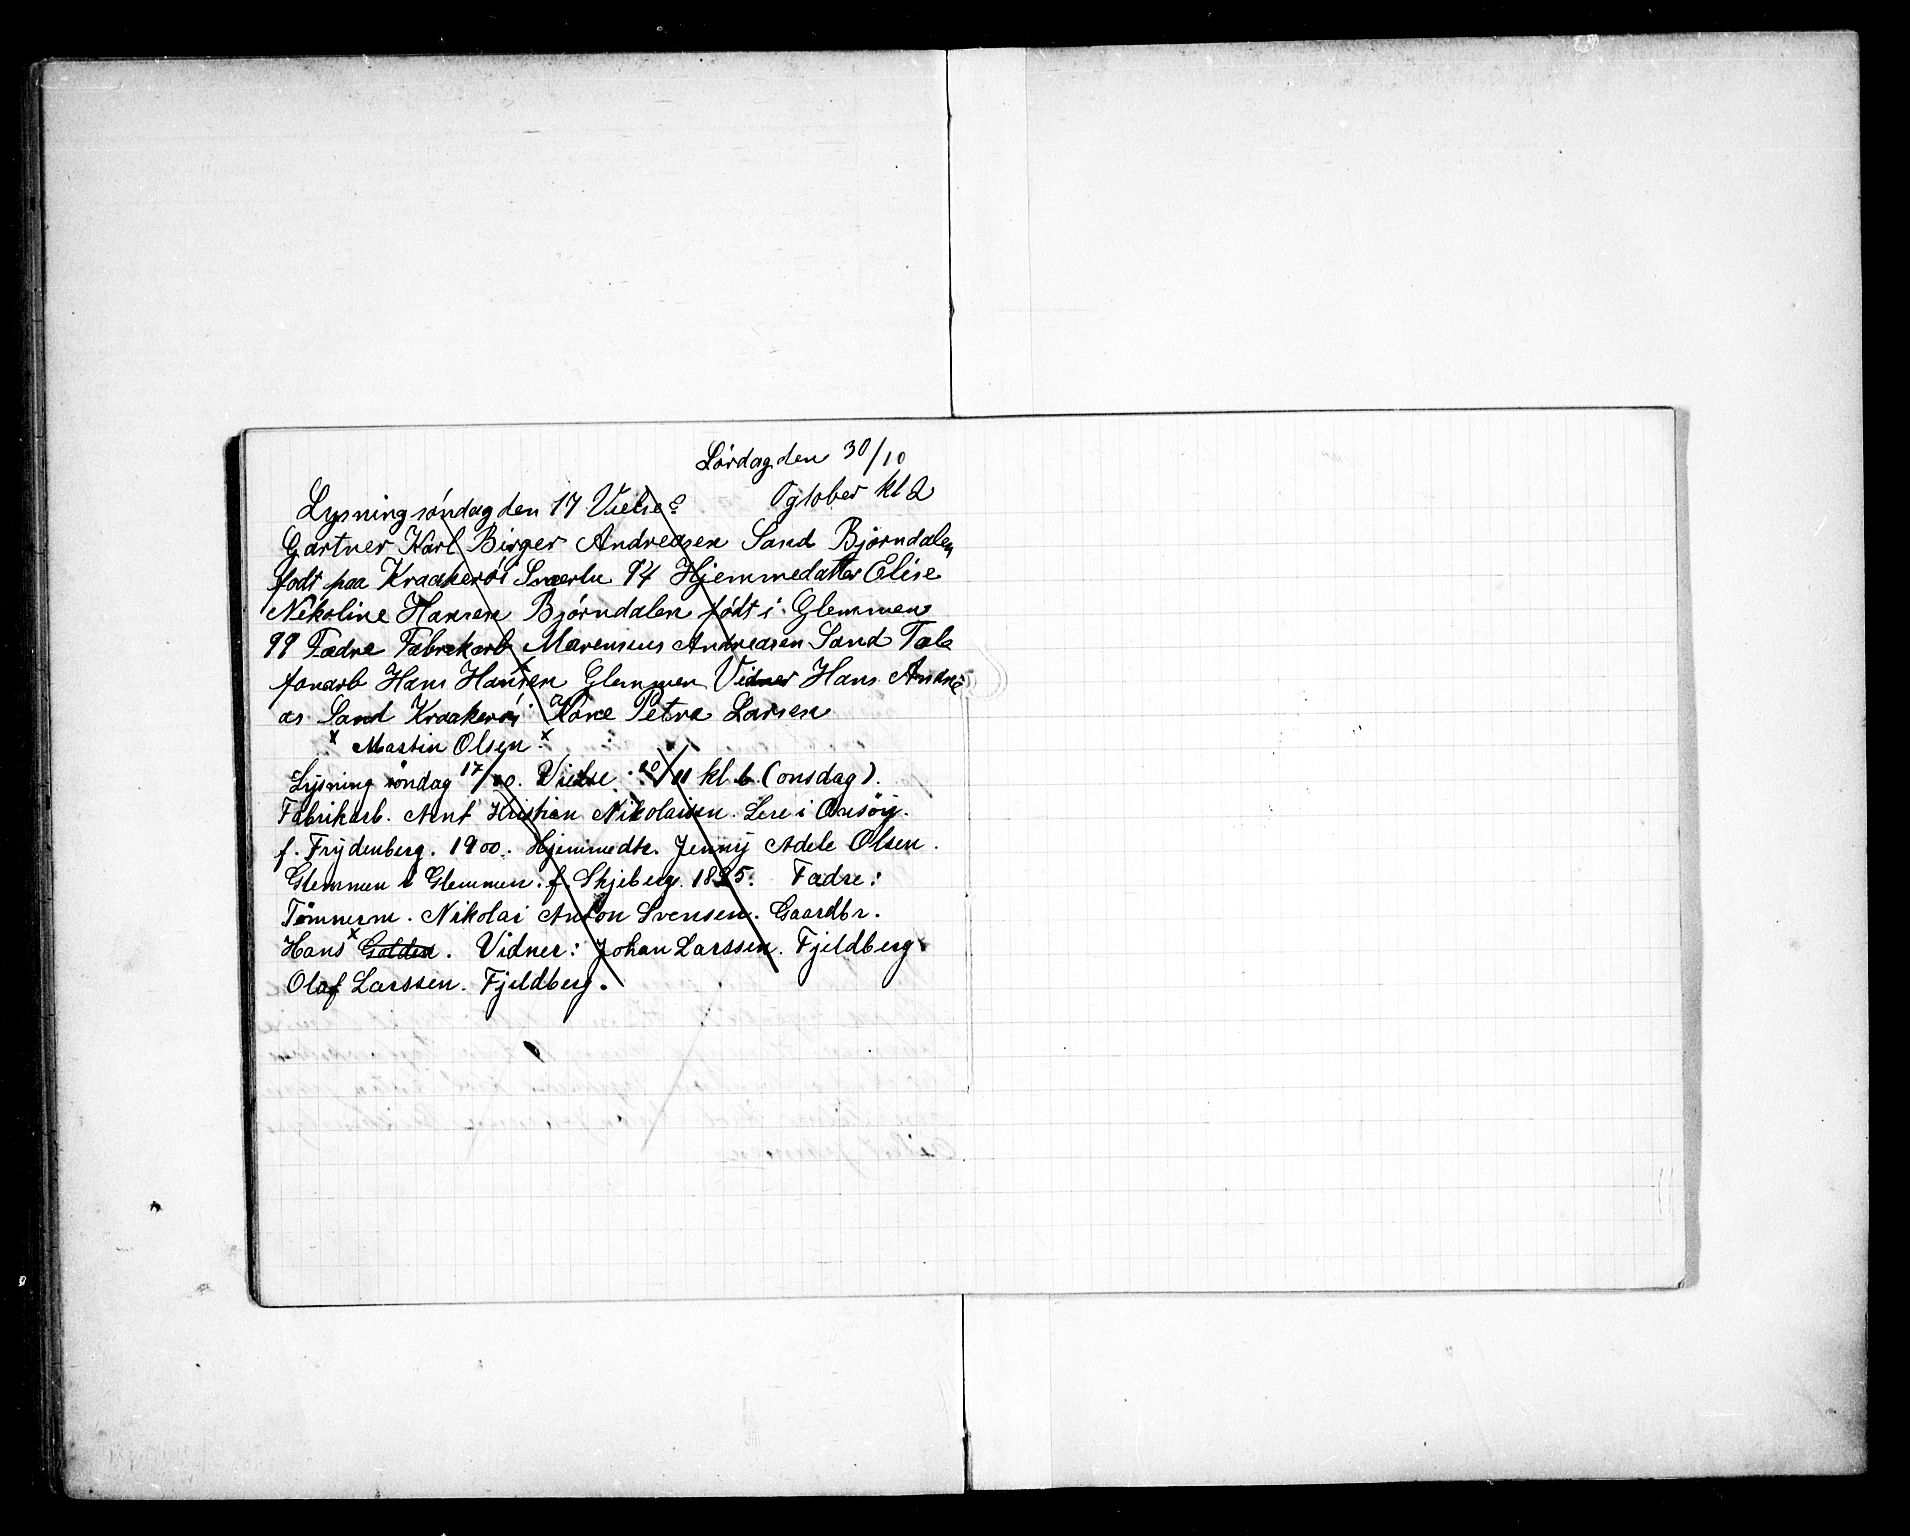 Lördag den 30/10
Lysning søndag den 17 Vielse Ogtober kl 2
Gartner Karl Birger Andreasen Sand Bjørndalen
født paa Kraakerøi 94 Hjemmedatter Elise
Nikoline Hansen Bjørndalen født i Glemmen
99 Fædre Fabrikarb Marensius Andreasen Sand Tele
fonarb Hans Hansen Glemmen Vidner Hans Andre
as Sand Kraakerøi Kone Petra Larsen
x Martin Olsen x
Lysning söndag 17/10. Vielse 10/11 kl. 6. (onsdag).
Fabrikarb. Arnt Kristian Nikolaisen. Lere i Onsöy.
f. Frydenberg. 1900. Hjemmedtr. Jenny Adele Olsen.
Glemmen i Glemmen. f. Skjeberg. 1895. Fædre:
Tömmerm. Nikolai Anton Svensen. Gaardbr.
Hans x Golden. Vidner: Johan Larssen. Fjeldberg
Olaf Larssen. Fjeldberg.